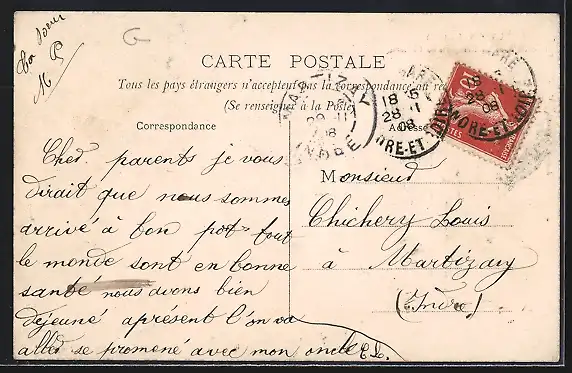 Ta Sœur
M P
CARTE POSTALE
Tous les pays étrangers n'acceptent pas la correspondance au
(Se renseigner à la Poste)
Correspondance
Adresse
MARTIZAY
29 - 11
08
INDRE
18 15
28 - 11
08
INDRE-ET-LOIRE
10
POSTES
Cher. parents je vous
dirait que nous sommes
arrivé à bon pot tout
le monde sont en bonne
santé nous avons bien
déjeuné aprésent l'on va
aller se promené avec mon oncle E L.
Monsieur
Chichery Louis
à Martizay
(Indre)